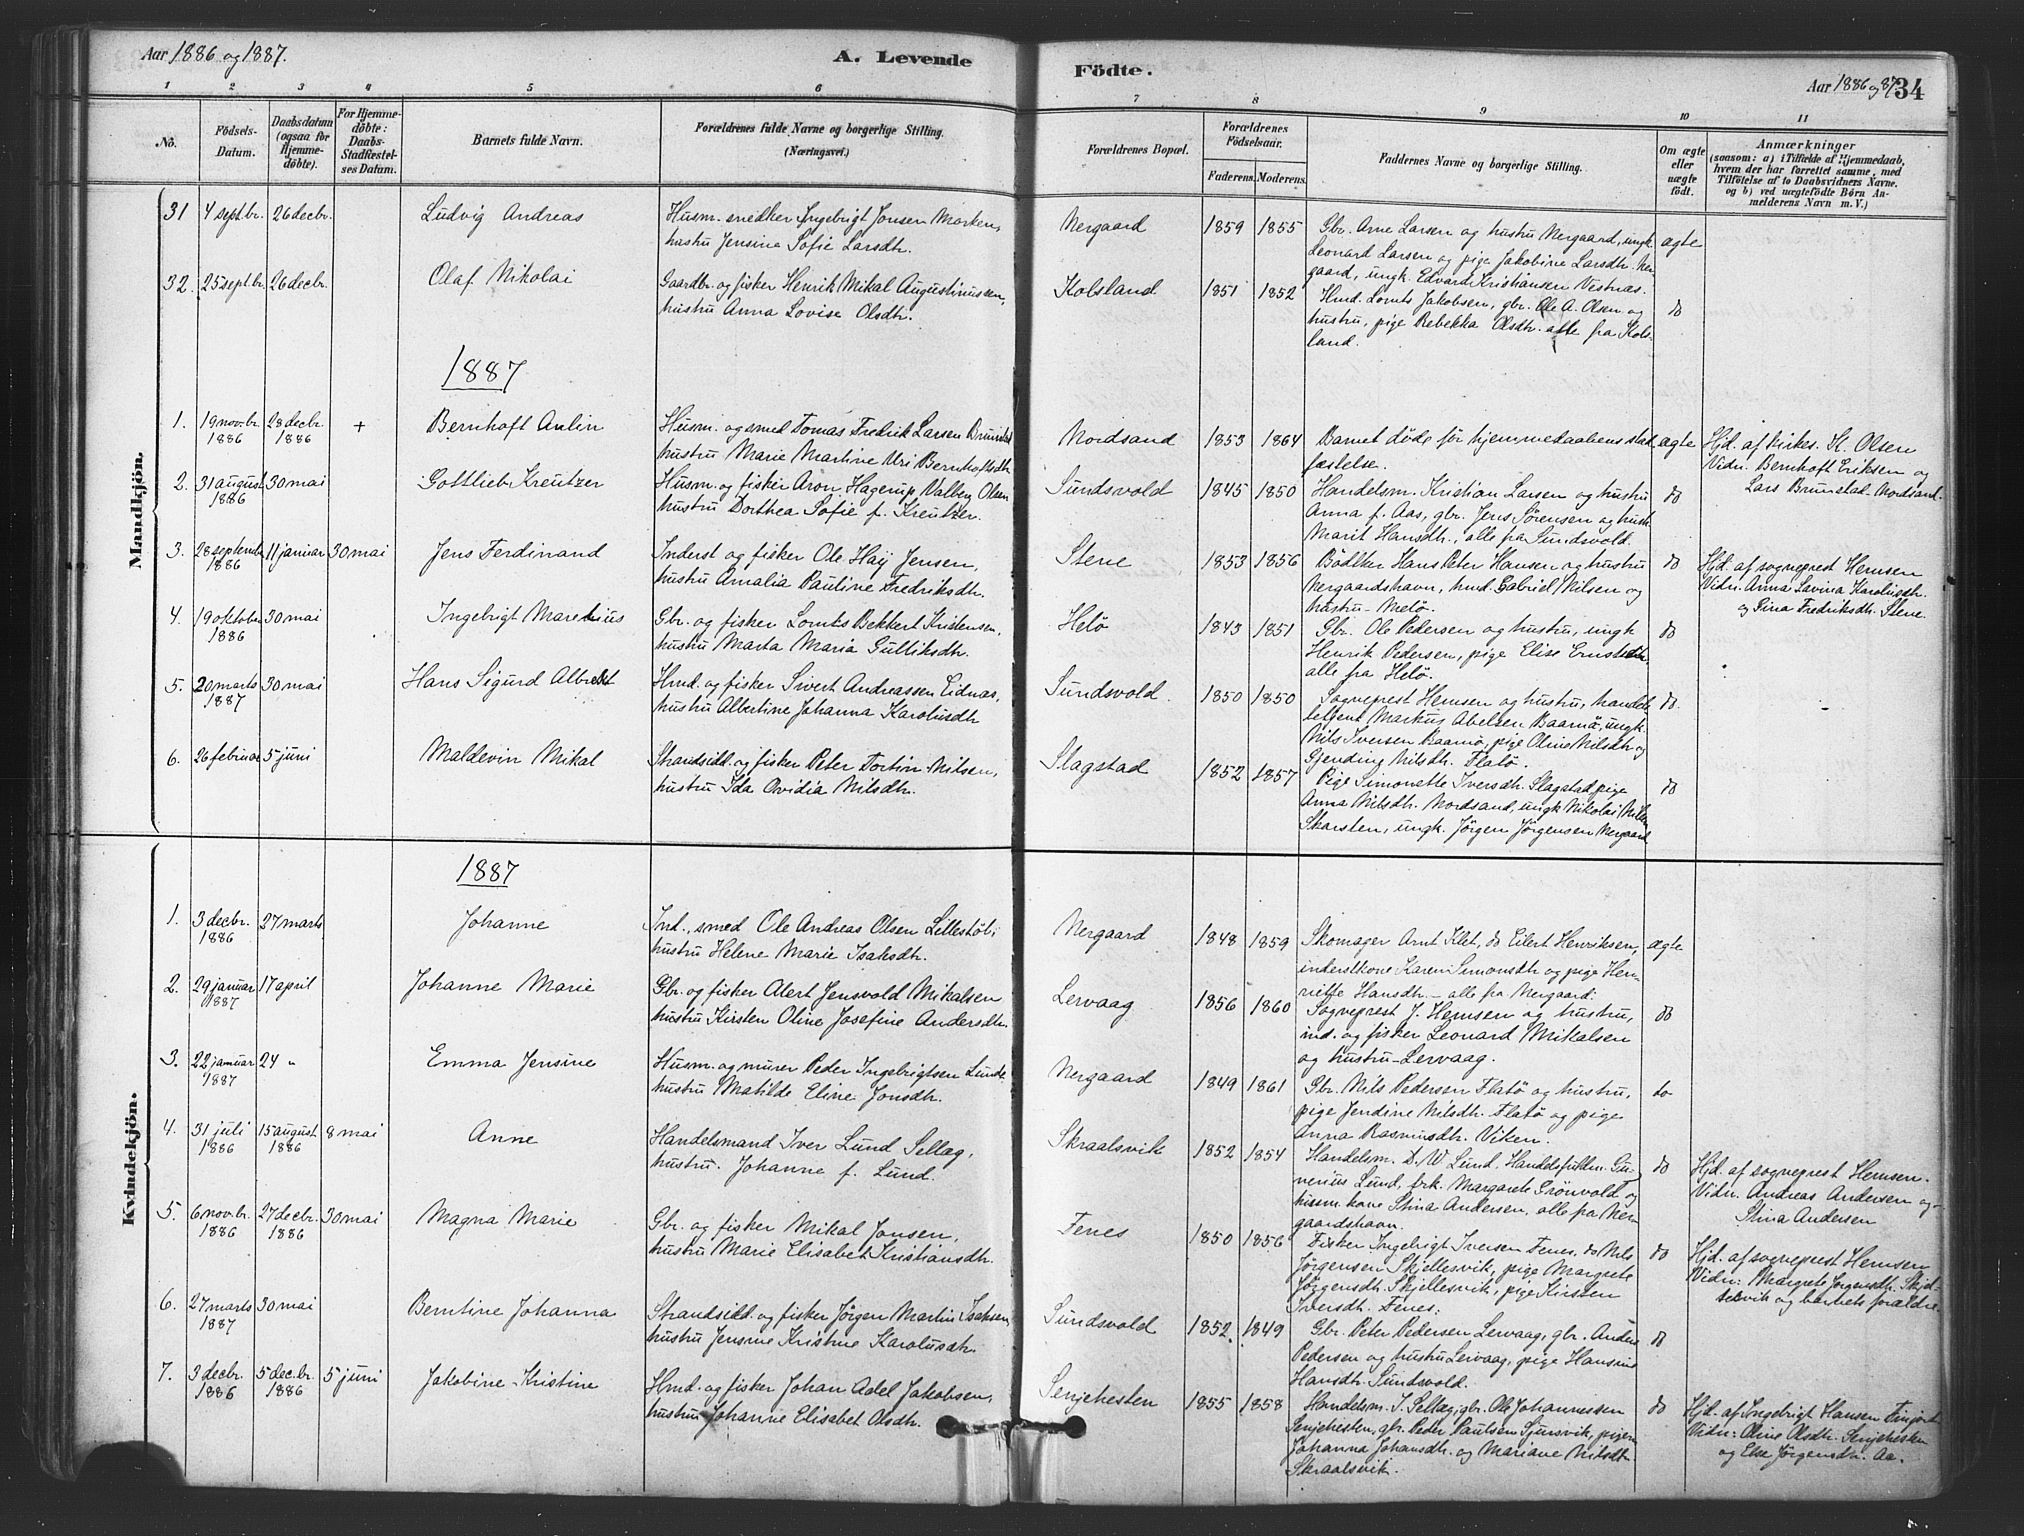 Aar 1886 og 1887.
A. Levende
Födte.
Aar 1886 og 87.
34
1 2 3 4 5 6 7 8 9 10 11
No.
Födsels-
Datum.
Daabsdatum
(ogsaa for
Hjemme-
döbte).
For Hjemme-
döbte:
Daabs-
Stadfæstel-
ses Datum.
Barnets fulde Navn.
Forældrenes fulde Navne og borgerlige Stilling.
(Næringsvei.)
Forældrenes Bopæl.
Forældrenes
Födselsaar.
Faderens. Moderens.
Faddernes Navne og borgerlige Stilling.
Om ægte
eller
uægte
födt.
Anmærkninger
(saasom: a) i Tilfælde af Hjemmedaab,
hvem der har forrettet samme, med
Tilföielse af to Daabsvidners Navne.
og b) ved uægtefödte Börn An-
melderens Navn m. V.)
Mandkjön.
31 4 septbr. 26 decbr. Ludvig Andreas
Husm. snedker Ingebrigt Jonsen Morken,
hustru Jensine Sofie Larsdtr.
Nergaard 1859 1855
Gbr. Arne Larsen og hustru Nergaard, ungk.
Leonard Larsen og pige Jakobine Larsdtr. Ner-
gaard, ungk. Edvard Kristiansen Vestnæs.
ægte
32. 25 septbr. 26 decbr. Olaf Nikolai
Gaardbr. og fisker Henrik Mikal Augustinussen,
hustru Anna Lovise Olsdtr.
Kolsland 1851 1852
Hmd. Lornts Jakobsen, gbr. Ole A. Olsen og
hustru, pige Rebekka Olsdtr. alle fra Kols-
land.
do
1887
1. 19 novbr. 1886 28 decbr. 1886 + Bernhoft Anlin
Husm. og smed Tomas Fredrik Larsen Brunstad
hustru Marie Martine Uri Bernhoftsdtr.
Nordsand 1853 1864
Barnet døde før hjemmedaabens stad-
fæstelse.
ægte
Hjd. af kirkes. K. Olsen
Vidn. Bernhoft Eriksen og
Lars Brunstad - Nordsand.
2. 31 august 1886 30 mai Gottlieb Kreutzer
Husm. og fisker Aron Hagerup Valberg Olsen
hustru Dorthea Sofie f. Kreutzer.
Sundsvold 1845 1850
Handelsm. Kristian Larsen og hustru
Anna f. Aas, gbr. Jens Sørensen og hustru
Marit Hansdtr., alle fra Sundsvold.
do
3. 28 septembr 1886 11 januar 30 mai Jens Ferdinand
Inderst og fisker Ole Høij Jensen,
hustru Amalia Pauline Fredriksdtr.
Stene 1853 1856
Bødker Hans Peter Hansen og hustru
Nergaardshavn, hmd. Gabriel Nilsen og
hustru - Melø.
do
Hjd. af sogneprest Hemsen
Vidn. Anna Lavina Karolusdtr.
og Tina Fredriksdtr. Stene.
4. 19 oktober 1886 30 mai Ingebrigt Maredius
Gbr. og fisker Lornts Bekkert Kristensen,
hustru Marta Maria Gulliksdtr.
Helø 1843 1851
Gbr. Ole Pedersen og hustru, ungk.
Henrik Pedersen, pige Elise Ernstsdtr.
alle fra Helø.
do
5. 20 marts 1887 30 mai Hans Sigurd Albrekt
Hmd. og fisker Sivert Andreassen Eidnæs,
hustru Albertine Johanna Karolusdtr.
Sundsvold 1850 1850
Sogneprest Hemsen og hustru, handels-
betjent Markus Abelsen Baarnø, ungk.
Nils Iversen Baarnø, pige Oline Nilsdtr. og
Gjendine Nilsdtr. Flatø.
do.
6. 26 februar 5 juni Maldevin Mikal
Strandsidd. og fisker Peter Tortin Nilsen,
hustru Ida Ovidia Nilsdtr.
Slagstad 1852 1857
Pige Simonette Iversdtr. Slagstad, pige
Anna Nilsdtr. Nordsand, ungk. Nikolai Nilsen
Skarsten, ungk. Jørgen Jørgensen Nergaard
do
Kvindekjön.
1887
1. 3 decbr. 1886 27 marts Johanne
Ind., smed Ole Andreas Olsen Lillestøl,
hustru Helene Marie Isaksdtr.
Nergaard 1848 1859
Skomager Arnt Klet, do Eilert Henriksen,
inderstkone Karen Simonsdtr. og pige Hen-
riette Hansdtr. - alle fra Nergaard.
ægte
2. 29 januar 1887 17 april Johanne Marie
Gbr. og fisker Alert Jensvold Mikalsen
hustru Kirsten Oline Josefine Andersdtr.
Lervaag 1856 1860
Sogneprest J. Hemsen og hustru,
ind. og fisker Leonard Mikalsen
og hustru - Lervaag.
do
3. 22 januar 1887 24 " Emma Jensine
Husm. og murer Peder Ingebrigtsen Lunde
hustru Matilde Eline Jonsdtr.
Nergaard 1849 1861
Gbr. Nils Pedersen Flatø og hustru,
pige Jendine Nilsdtr. Flatø og pige
Anna Rasmusdtr. Viken.
do
4. 31 juli 1886 15 august 1886 8 mai Anne
Handelsmand Iver Lund Sellæg,
hustru. Johanne f. Lund.
Skraalsvik 1852 1854
Handelsm. D. W. Lund. Handelsfuldm. Gu-
nerius Lund, frk. Margarete Grønvold og
husm. kone Stina Andersen, alle fra Ner-
gaardshavn.
do
Hjd. af sogneprest Hemsen.
Vidn. Andreas Andersen og
Stina Andersen
5. 6 novbr. 1886 27 decbr. 1886 30 mai Magna Marie
Gbr. og fisker Mikal Jonsen,
hustru Marie Elisabet Kristiansdtr.
Fenes 1850 1856
Fisker Ingebrigt Iversen Fenes, do Nils
Jørgensen Skjellesvik, pige Margrete
Jørgensdtr. Skjellesvik, pige Kirsten
Iversdtr. Fenes.
do
Hjd. af sogneprest Hemsen
Vidn: Margrete Jørgensdtr. Skjel-
lesvik og barnets forældre.
6. 27 marts 1887 30 mai Berntine Johanna
Strandsidd. og fisker Jørgen Martin Isaksen,
hustru Jensine Kristine Karolusdtr.
Sundsvold 1852. 1849
Gbr. Peter Pedersen Lervaag, gbr. Anders
Pedersen og hustru Lervaag, pige Hansine
Hansdtr. Sundsvold.
do
7. 3 decbr. 1886 5 decbr. 1886 5 juni Jakobine Kristine
Hmd. og fisker Johan Adel Jakobsen,
hustru Johanne Elisabet Olsdtr.
Senjehesten 1855 1858
Handelsm. I. Sellæg, gbr. Ole Johannessen
Senjehesten, gbr. Peder Paulsen Sjursvik, pigen
Johanna Johansdtr. og Mariane Nilsdtr.
Skraalsvik.
do
Hjd. af Ingebrigt Hansen Finjord
Vidn: Oline Olsdtr. Senjehesten
og Else Jørgensdtr. Aa.